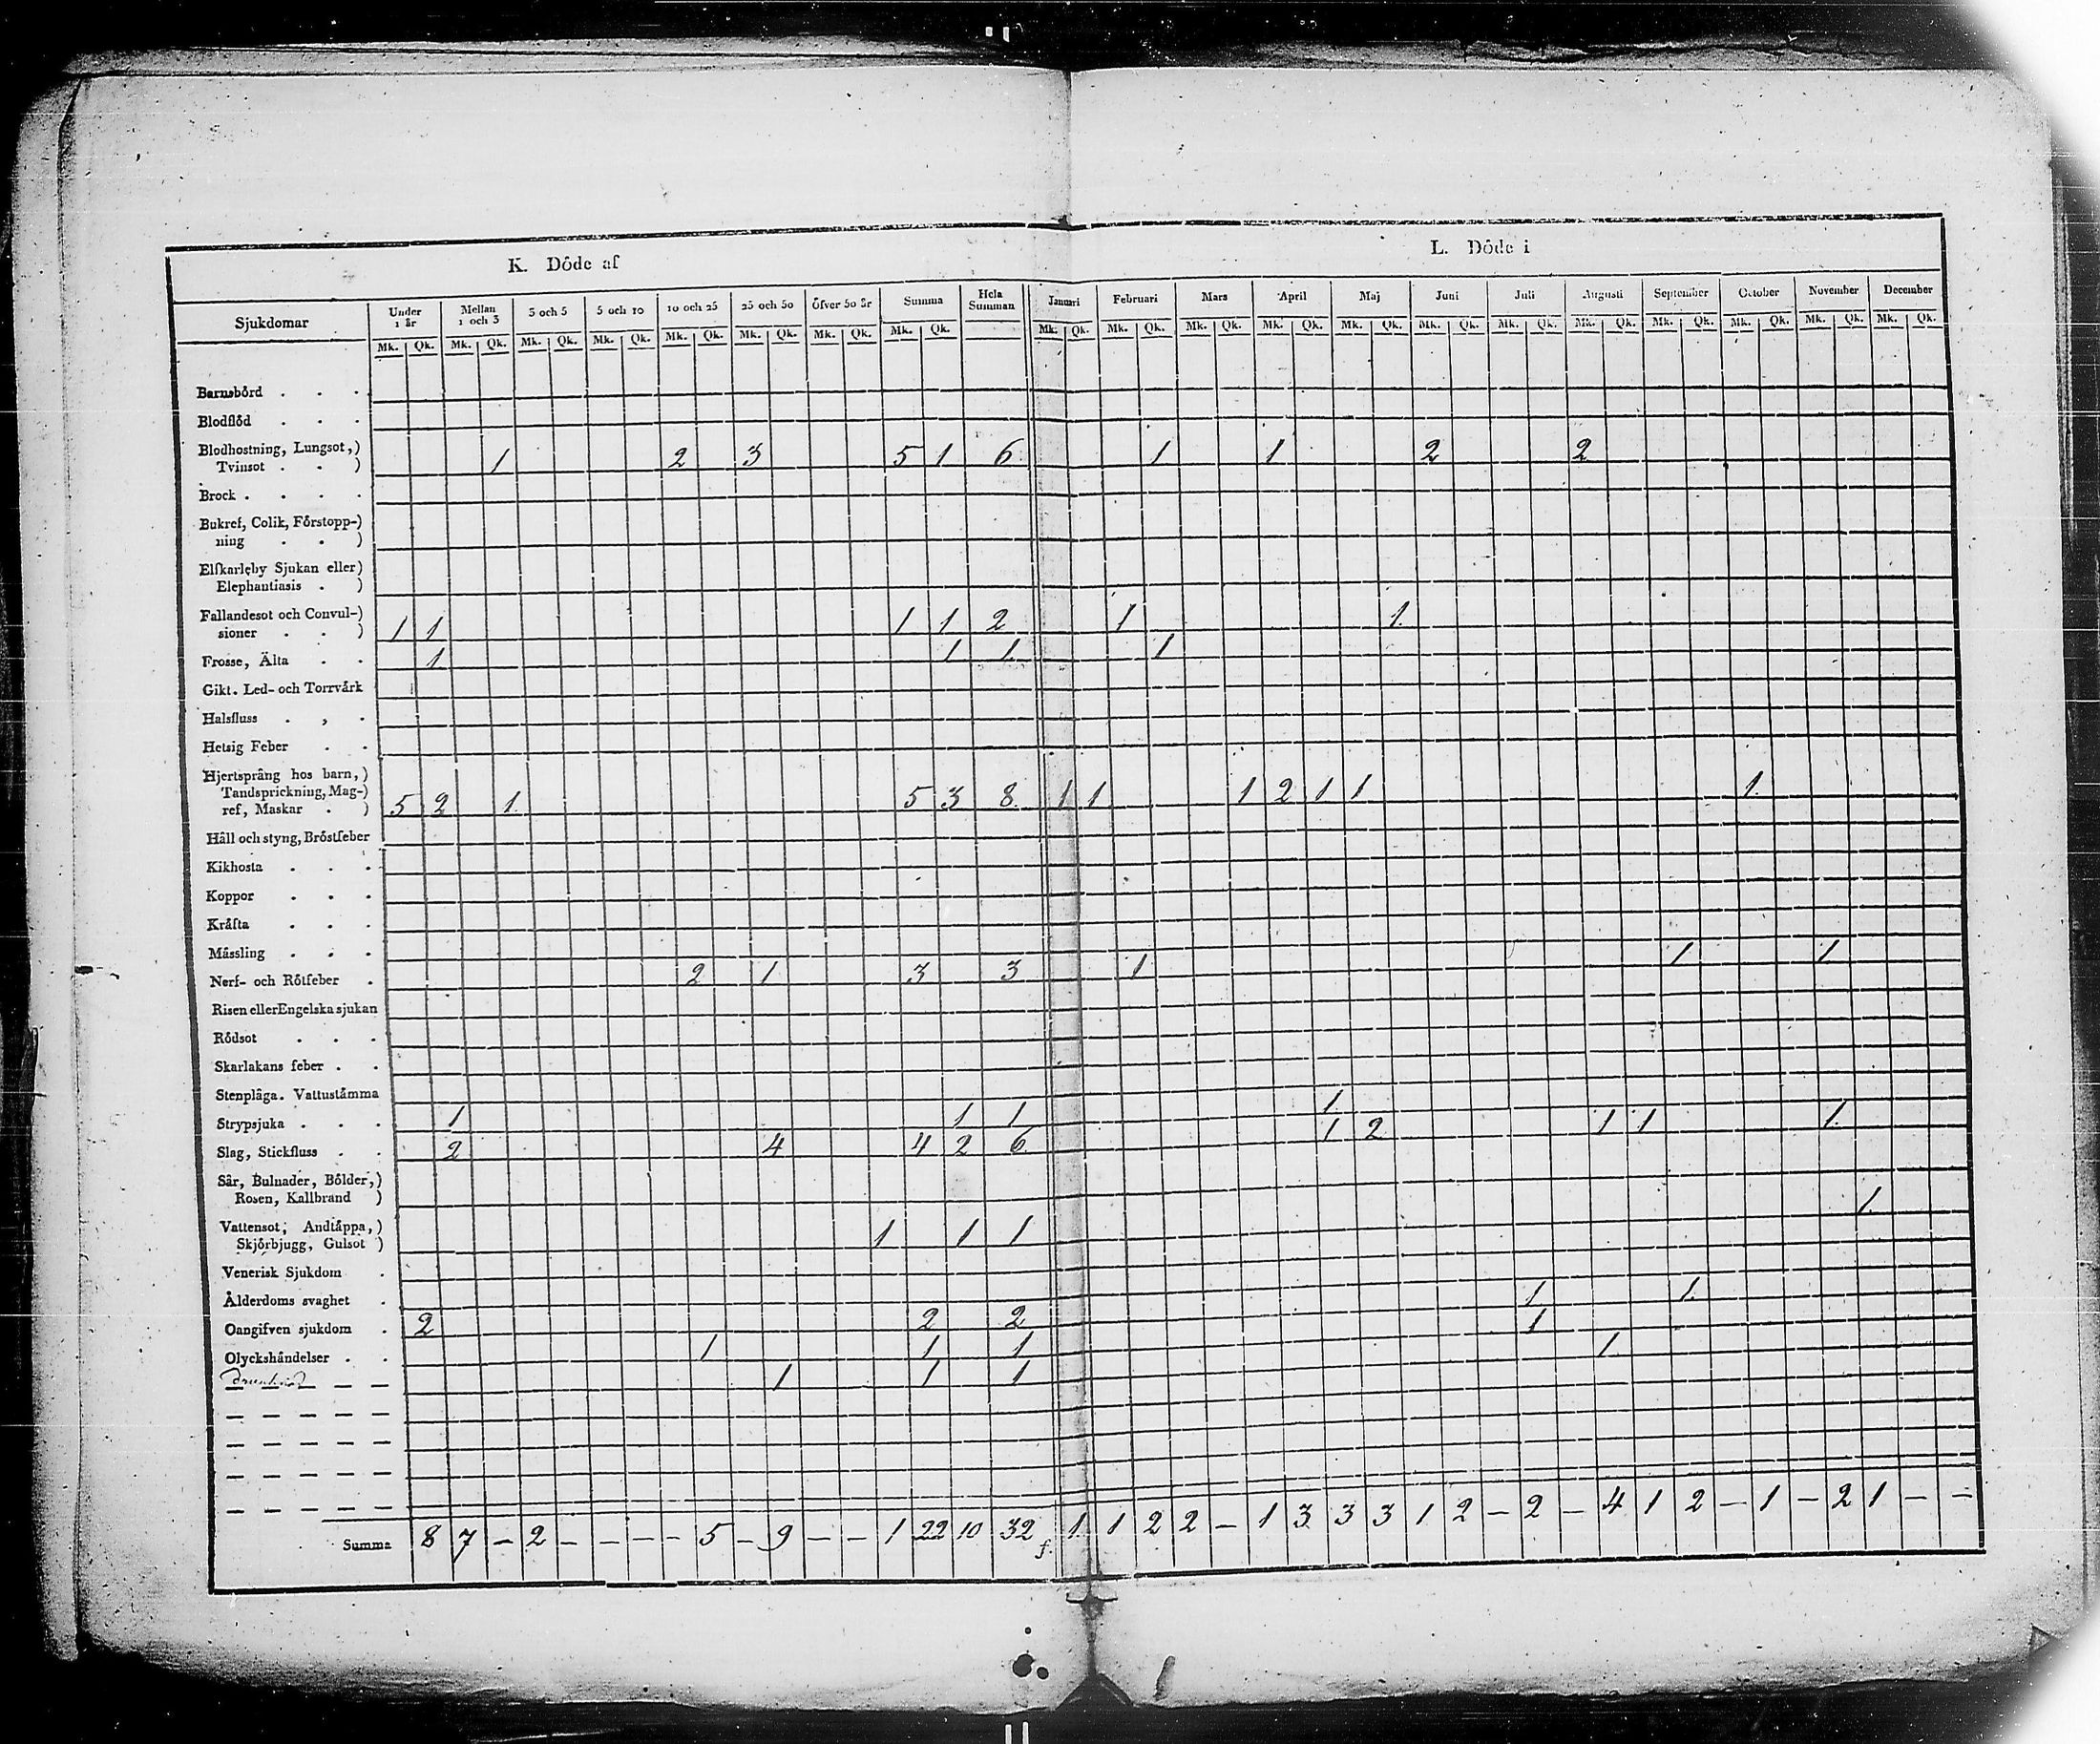 K. Döde af
L. Döde i
Sjukdomar Under 1 år Mellan 1 och 3 3 och 5 5 och 10 10 och 25 25 och 50 Öfver 50 år Summa Hela Summan Januari Februari Mars April Maj Juni Juli Augusti September October November December
Mk. Qk. Mk. Qk. Mk. Qk. Mk. Qk. Mk. Qk. Mk. Qk. Mk. Qk. Mk. Qk. Mk. Qk. Mk. Qk. Mk. Qk. Mk. Qk. Mk. Qk. Mk. Qk. Mk. Qk. Mk. Qk. Mk. Qk. Mk. Qk. Mk. Qk. Mk. Qk.
Barnsbörd . . .
Blodflöd . . .
Blodhostning, Lungsot,)
Tvinsot . . ) 1 2 3 5 1 6 1 1 2 2
Brock . . . .
Bukref, Colik, Förstopp-)
ning . . )
Elfkarleby Sjukan eller)
Elephantiasis . )
Fallandesot och Convul-)
sioner . . ) 1 1 1 1 2 1 1.
Frosse, Älta . . 1 1 1. 1
Gikt. Led- och Torrvärk
Halsfluss . , .
Hetsig Feber . .
Hjertsprång hos barn,)
Tandsprickning, Mag-)
ref, Maskar . ) 5 2 1. 5 3 8. 1 1 1 2 1 1 1.
Håll och styng, Bröstfeber
Kikhosta . . .
Koppor . . .
Kräfta . . .
Mässling . . .
Nerf- och Rötfeber . 2 1 3 3 1 1 1.
Risen eller Engelska sjukan
Rödsot . . .
Skarlakans feber . .
Stenplåga. Vattustämma
Strypsjuka . . . 1 1 1 1
Slag, Stickfluss . . 2 4 4 2 6. 1 2 1 1 1.
Sår, Bulnader, Bölder,)
Rosen, Kallbrand )
Vattensot, Andtäppa,)
Skjörbjugg, Gulsot ) 1 1 1 1.
Venerisk Sjukdom .
Ålderdoms svaghet .
Oangifven sjukdom . 2 2 2 1 1.
Olyckshändelser . . 1 1 1 1
1 1 1 1.
Summa 8 7 – 2 – – – – 5 – 9 – – 1 22 10 32 1. 1 2 2 – 1 3 3 3 1 2 – 2 – 4 1 2 – 1 – 2 1 – –